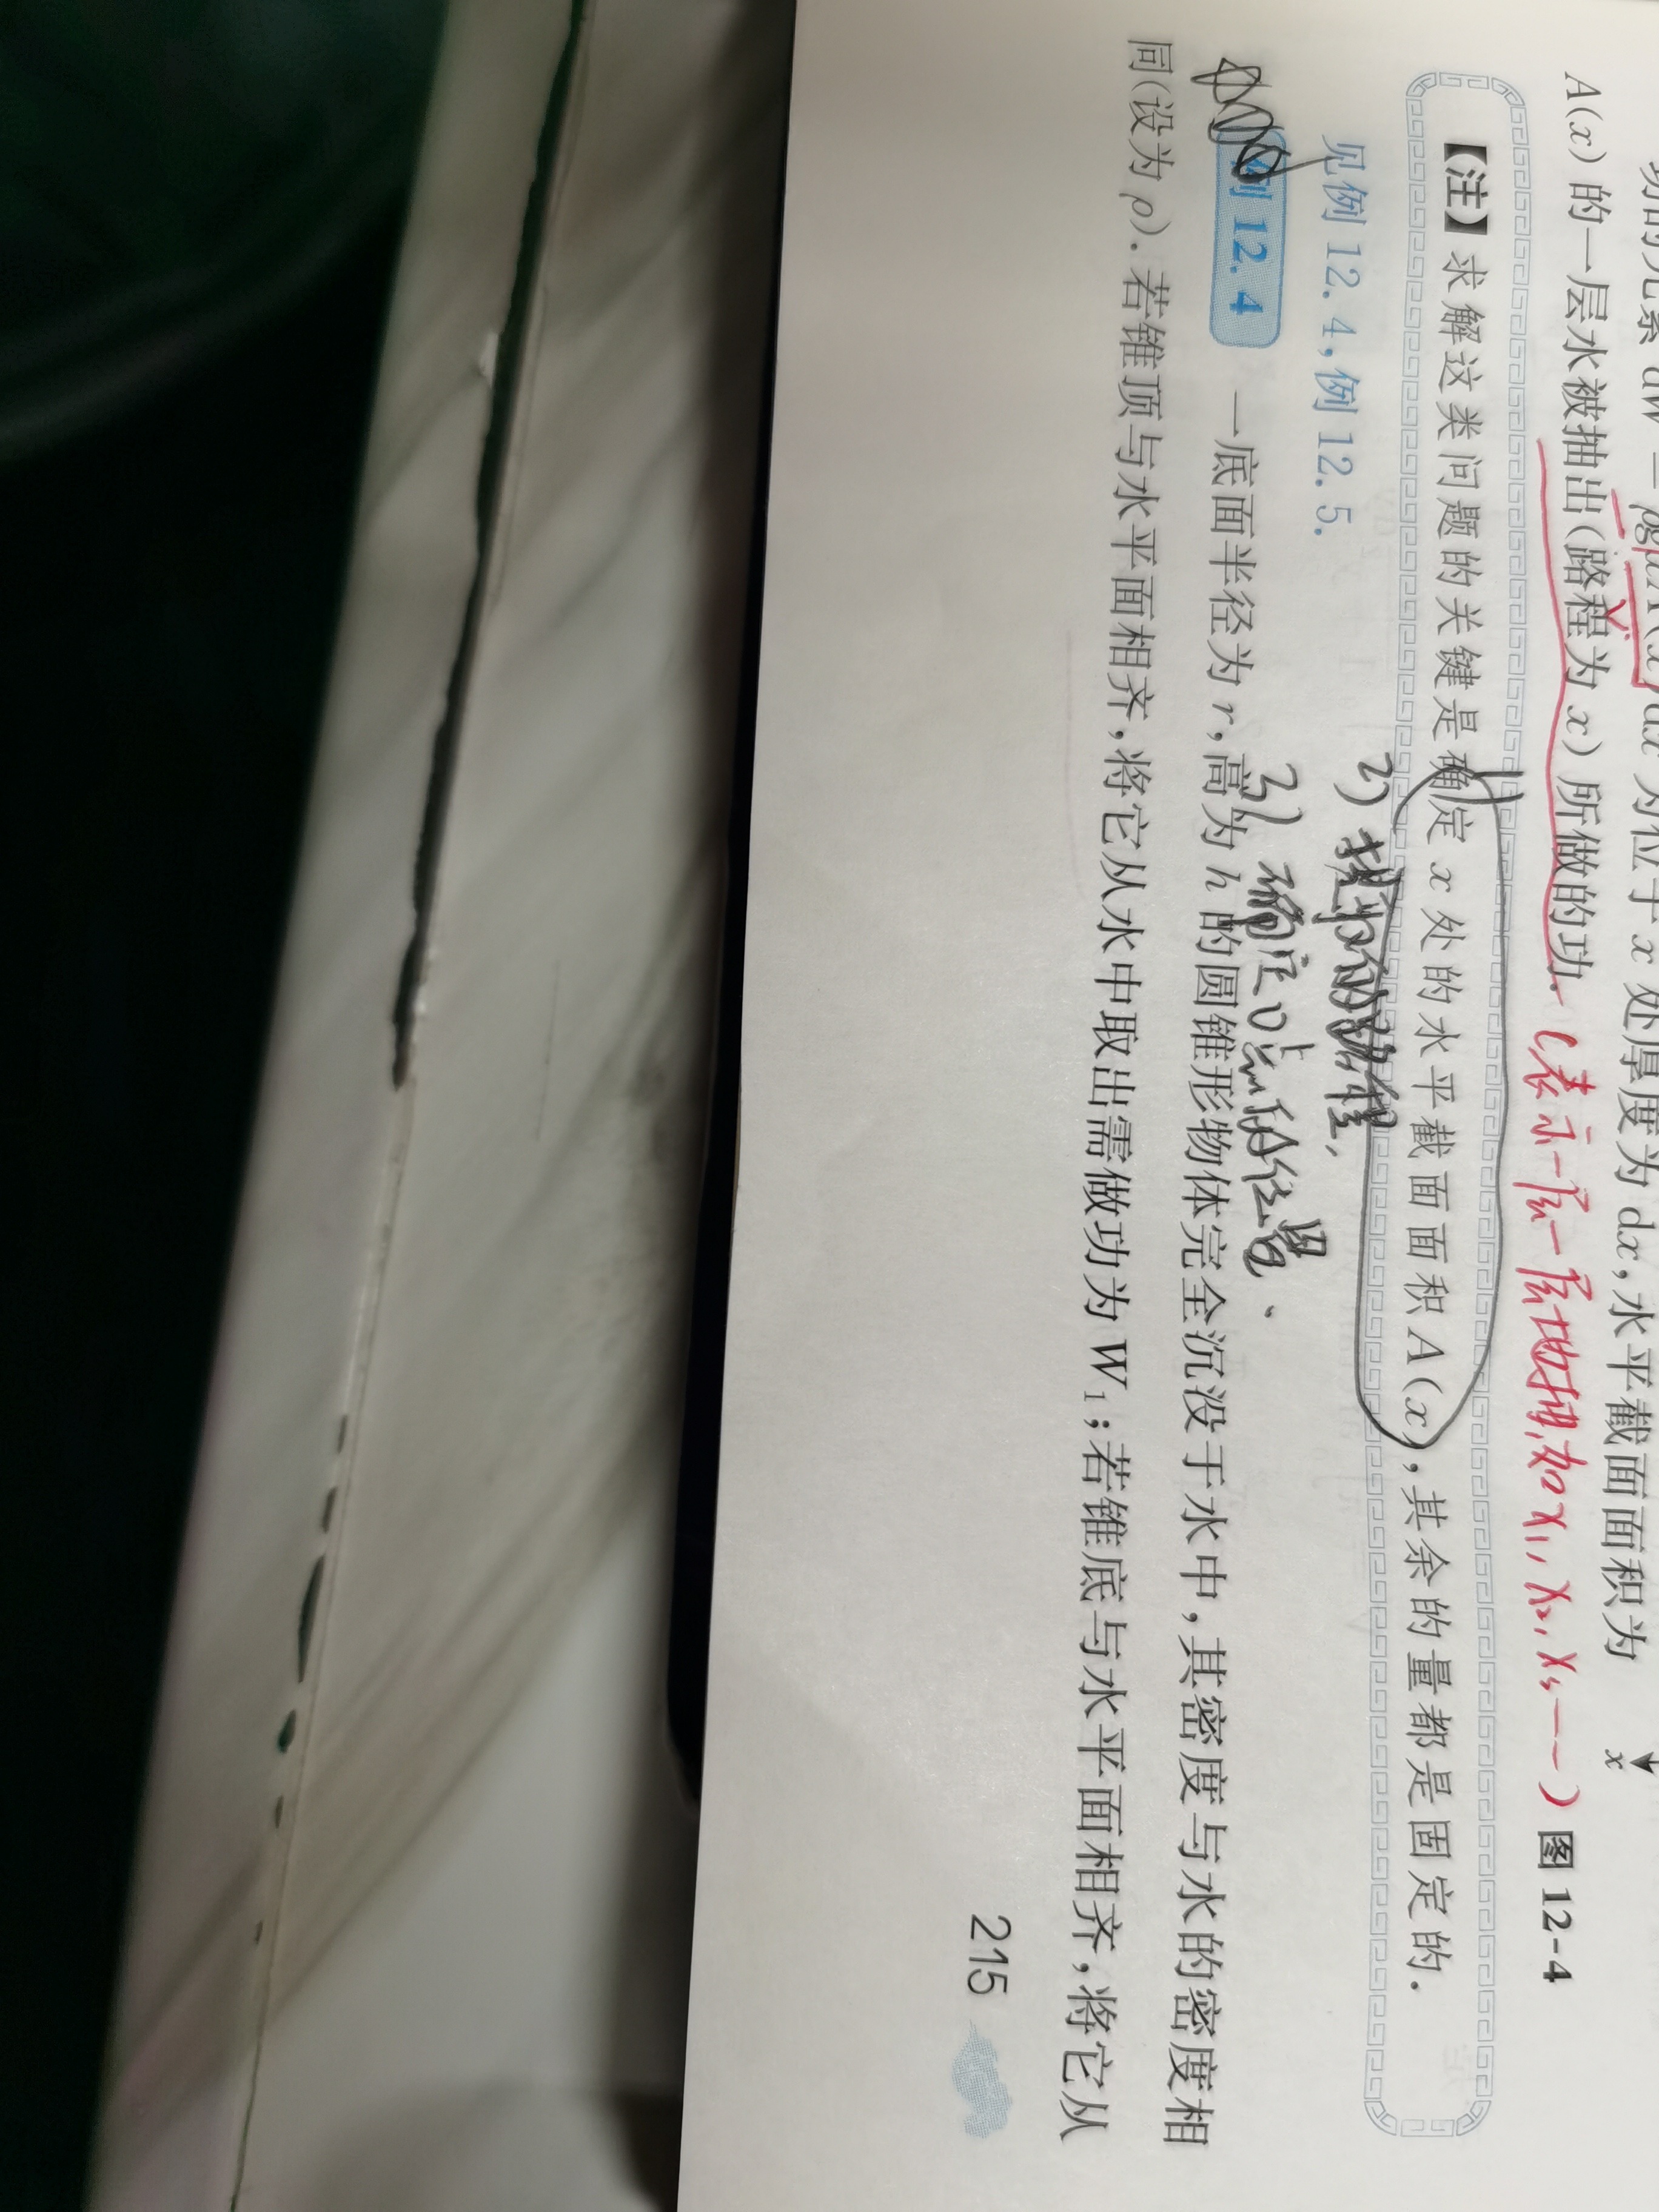 A(x) 的一层水被抽出(路程为 x) 所做的功. (表示一层一层地抽,如x₁, x₂, x₃ ——) 图 12-4
【注】求解这类问题的关键是确定 x 处的水平截面面积 A(x),其余的量都是固定的.
2)
见例 12.4,例 12.5.
3) 确定O点和位置、
例 12.4 一底面半径为 r,高为 h 的圆锥形物体完全沉没于水中,其密度与水的密度相
同(设为 ρ). 若锥顶与水平面相齐,将它从水中取出需做功为 W₁;若锥底与水平面相齐,将它从
215